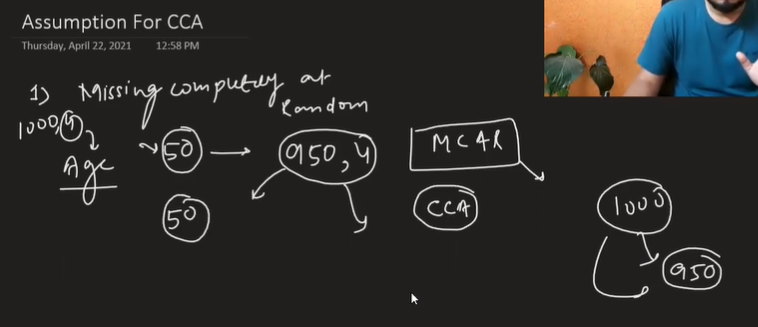 Assumption For CCA
Thursday, April 22, 2021 12:58 PM
1) Missing completely at
Random
1000, 4
Age
~50 → 950, 4
MCAR
50
CCA
1000
950